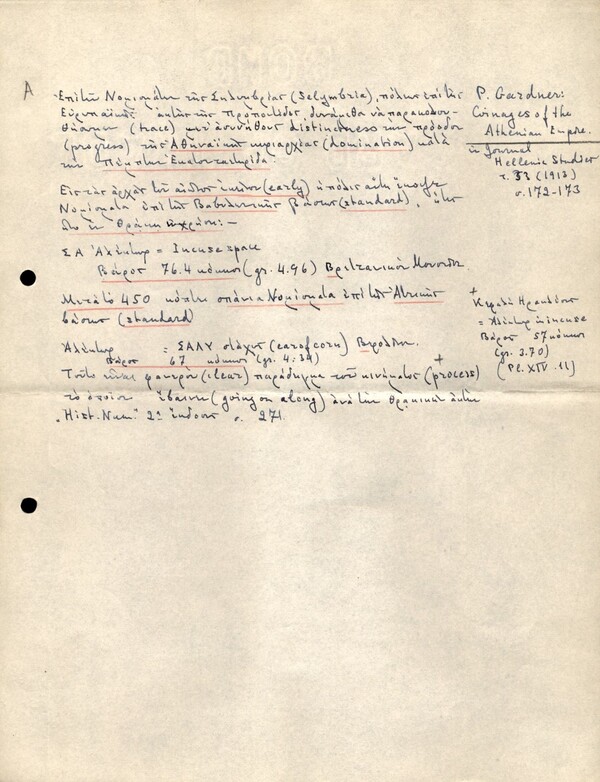 A
Επί των Νομισμάτων της Σηλυμβρίας (Selymbria), πόλεως επί της
Ευρωπαϊκής ακτής της Προποντίδος, δυνάμεθα να παρακολου-
θήσωμεν (trace) μετ' ασυνήθους distinctness την πρόοδον
(progress) της Αθηναϊκής κυριαρχίας (domination) κατά
την Πέμπτην Εκατονταετηρίδα.
Εις τας αρχάς του αιώνος (early) η πόλις αύτη έκοψε
Νομίσματα επί της Βαβυλωνιακής βάσεως (standard),
εν Θράκη εν χρήσει:—
ΣΑ Αλέκτωρ = Incuse space
Βάρος 76.4 κόκκοι (gr. 4.96) Βρεττανικόν Μουσείον
Μετά το 450 κόπτει σπάνια Νομίσματα επί της Αττικής
βάσεως (standard)
Αλέκτωρ = ΣΑΛΥ στάχυς (ear of corn) Βερολίνον.
Βάρος 67 κόκκοι (gr. 4.34)
Τούτο είναι φανερόν (clear) παράδειγμα του κινήματος (process)+
το οποίον έβαινε (going on along) ανά την Θρακικήν ακτήν
"Hist. Num." 2α έκδοσις σ. 271
P. Gardner:
Coinages of the
Athenian Empire.
in Journal
Hellenic Studies
τ. 33 (1913)
σ. 172-173
+
Κεφαλή Ηρακλέους
= Αλέκτωρ in incuse
Βάρος 57 κόκκοι
(gr. 3.70)
(Pl. XIV. 11)